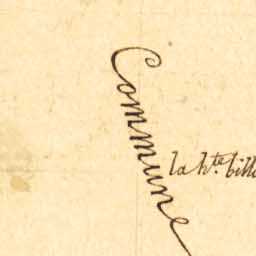 Commune
la h.te bill